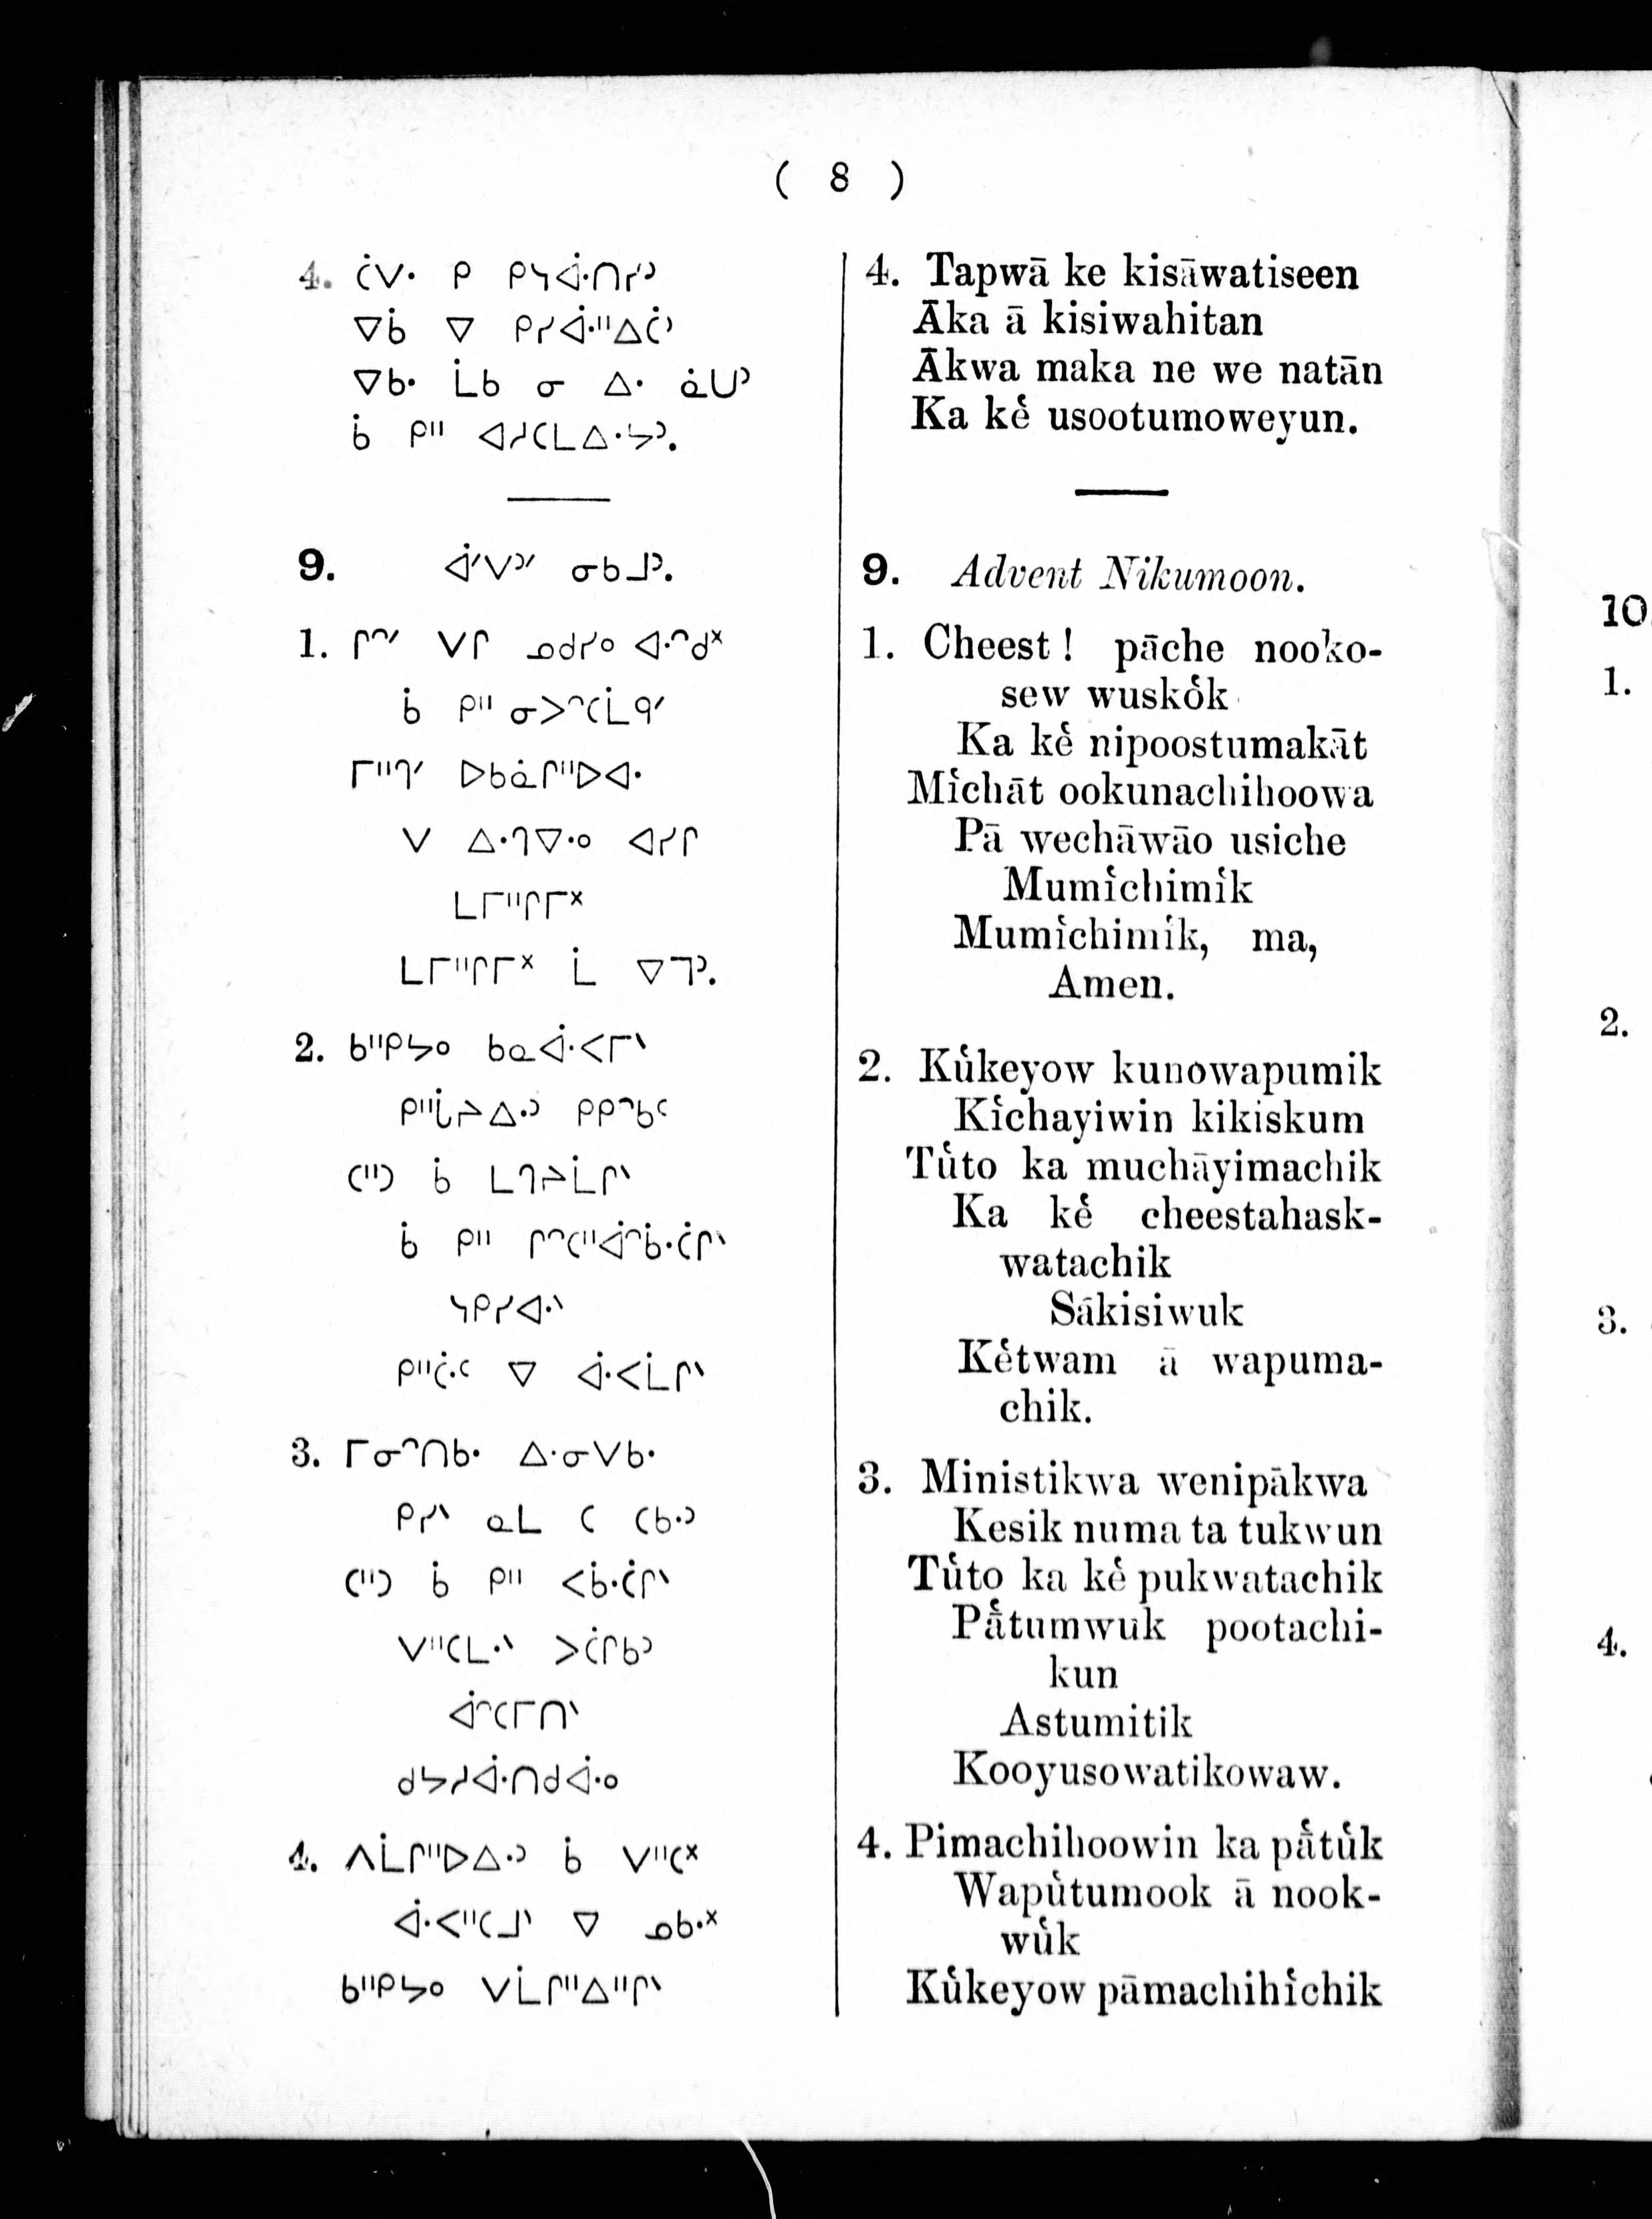 ( 8 )
4. ᑖᐯᐧ ᑭ ᑭᓴᐚᑎᓯᐣ
ᐁᑳ ᐁ ᑭᓯᐚᐦᐃᑖᐣ
ᐁᑲᐧ ᒫᑲ ᓂ ᐃᐧ ᓈᑌᐣ
ᑳ ᑭᐦ ᐊᓱᑕᒪᐃᐧᔭᐣ.
9. ᐋᐟᐯᐣᐟ ᓂᑲᒧᐣ.
1. ᒋᐢᐟ ᐯᒋ ᓄᑯᓯᐤ ᐊᐧᐢᑯᕽ
ᑳ ᑭᐦ ᓂᐳᐢᑕᒫᑫᐟ
ᒥᐦᒉᐟ ᐅᑲᓈᒋᐦᐅᐊᐧ
ᐯ ᐃᐧᒉᐁᐧᐤ ᐊᓯᒋ
ᒪᒥᐦᒋᒥᕽ
ᒪᒥᐦᒋᒥᕽ ᒫ ᐁᒣᐣ.
2. ᑲᐦᑭᔭᐤ ᑲᓇᐚᐸᒥᐠ
ᑭᐦᒑᔨᐃᐧᐣ ᑭᑭᐢᑲᒼ
ᑕᐦᑐ ᑳ ᒪᒉᔨᒫᒋᐠ
ᑳ ᑭᐦ ᒋᐢᑕᐦᐋᐢᑳᐧᑖᒋᐠ
ᓴᑭᓯᐊᐧᐠ
ᑭᐦᑖᐧᒼ ᐁ ᐚᐸᒫᒋᐠ
3. ᒥᓂᐢᑎᑲᐧ ᐃᐧᓂᐯᑲᐧ
ᑭᓯᐠ ᓇᒪ ᑕ ᑕᑲᐧᐣ
ᑕᐦᑐ ᑳ ᑭᐦ ᐸᑳᐧᑖᒋᐠ
ᐯᐦᑕᒪᐧᐠ ᐳᑖᒋᑲᐣ
ᐋᐢᑕᒥᑎᐠ
ᑯᔭᓱᐚᑎᑯᐚᐤ
4. ᐱᒫᒋᐦᐅᐃᐧᐣ ᑳ ᐯᐦᑕᕽ
ᐚᐸᐦᑕᒧᐠ ᐁ ᓄᑲᐧᕽ
ᑲᐦᑭᔭᐤ ᐯᒫᒋᐦᐃᐦᒋᐠ
4. Tapwā ke kisāwatiseen
Āka ā kisiwahitan
Ākwa maka ne we natān
Ka kė̔ usootumoweyun.
9. Advent Nikumoon.
1. Cheest ! pāche nooko-
sew wuskȯ̔k
Ka kė̔ nipoostumakāt
Mi̔chāt ookunachihoowa
Pā wechāwāo usiche
Mumi̔chimi̔k
Mumi̔chimi̔k, ma,
Amen.
2. Ku̔keyow kunowapumik
Ki̔chayiwin kikiskum
Tu̔to ka muchāyimachik
Ka ke̔ cheestahask-
watachik
Sākisiwuk
Ke̔twam ā wapuma-
chik.
3. Ministikwa wenipākwa
Kesik numa ta tukwun
Tu̔to ka ke̔ pukwatachik
Pā̔tumwuk pootachi-
kun
Astumitik
Kooyusowatikowaw.
4. Pimachihoowin ka pā̔tu̔k
Wapu̔tumook ā nook-
wu̔k
Ku̔keyow pāmachihi̔chik
10
1.
2.
3.
4.